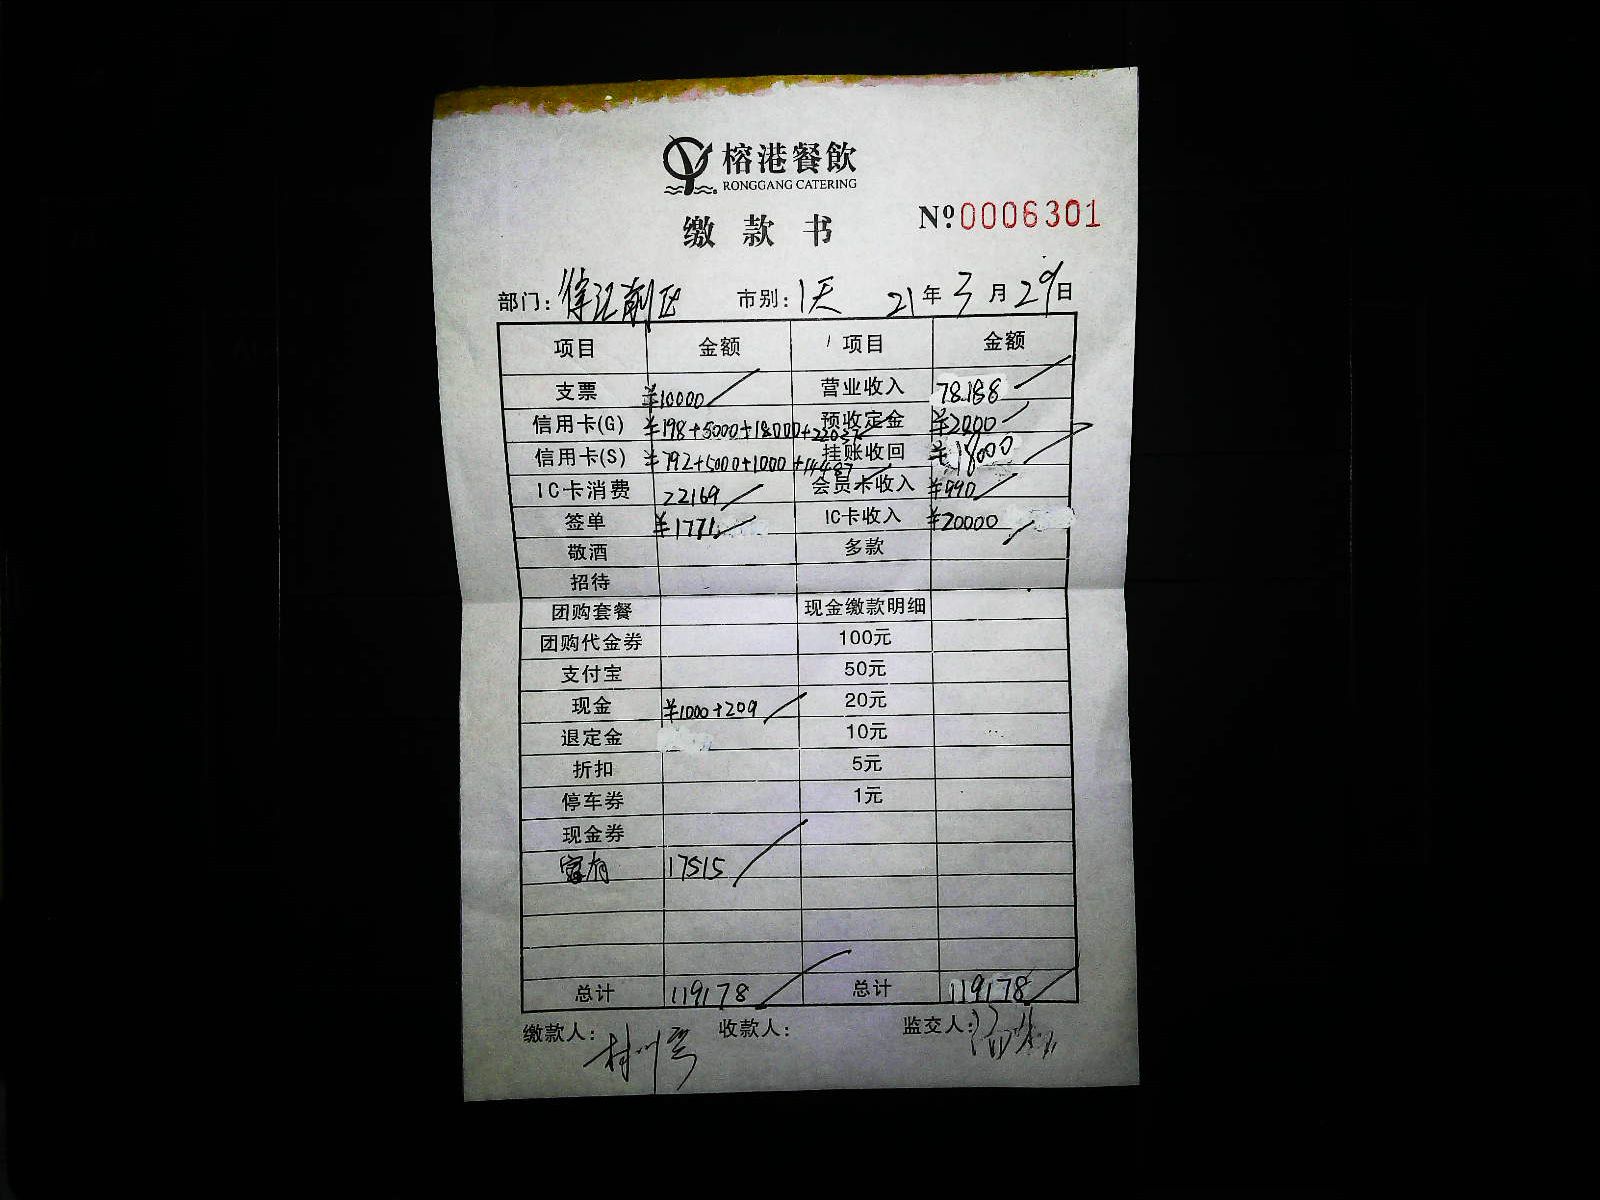 榕港餐飲
RONGGANG CATERING
缴款书 Nº 0006301
部门: 市别: 1天 21年3月29日
项目 金额 项目 金额
支票 ¥10000 营业收入 78188
信用卡(G) ¥198+5000+18000+22037 预收定金 ¥2000
信用卡(S) ¥792+5000+1000+14487 挂账收回 ¥18000
IC卡消费 22169 会员卡收入 ¥990
签单 ¥1771 IC卡收入 ¥20000
敬酒 多款
招待
团购套餐 现金缴款明细
团购代金券 100元
支付宝 50元
现金 ¥1000+209 20元
退定金 10元
折扣 5元
停车券 1元
现金券
17515
总计 119178 总计 119178
缴款人: 收款人: 监交人: